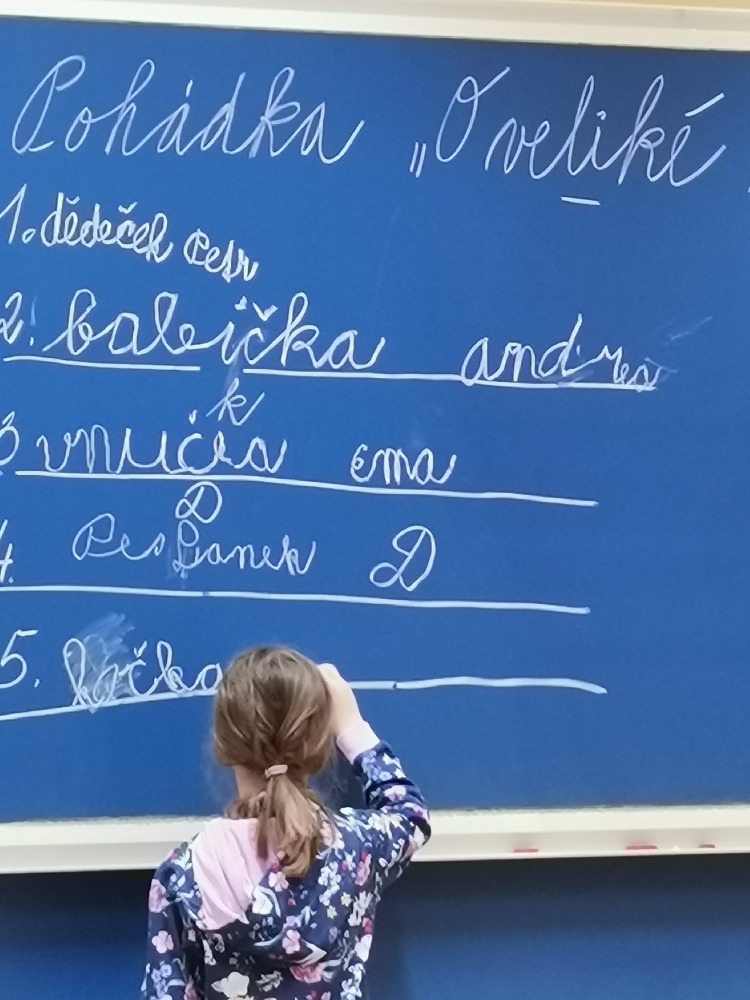 Pohádka „O veliké
1. dědeček Petr
2. babička andrea
k
3 vnučka ema
D
4. Pes Danek D
5. kočka